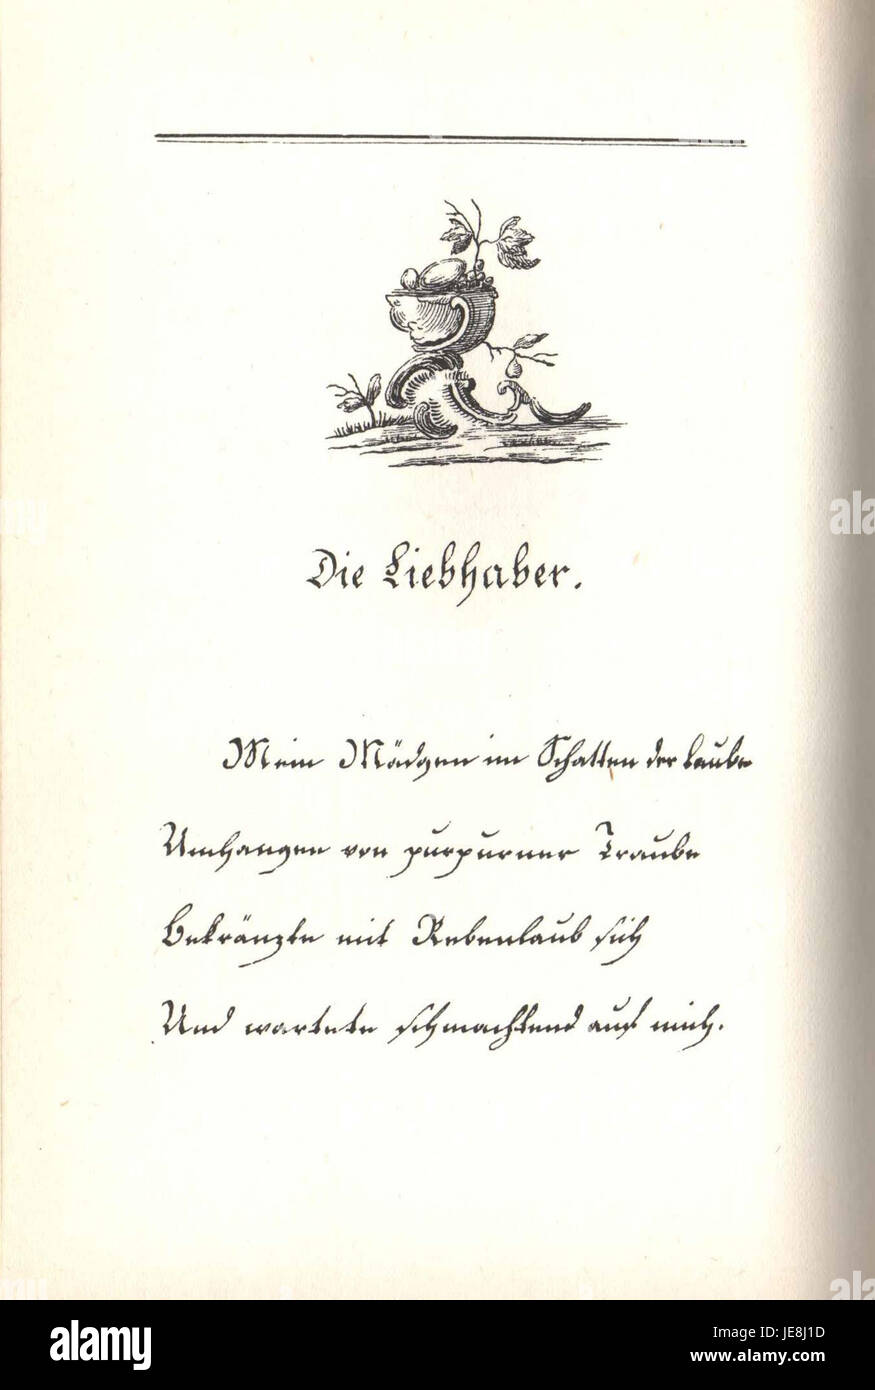 Die Liebhaber.
Mein Mädgen im Schatten der Laube
Umhangen von purpurner Traube
Bekränzte mit Rebenlaub sich
Und wartete schmachtend auf mich.
alamy
Image ID: JE8J1D
www.alamy.com